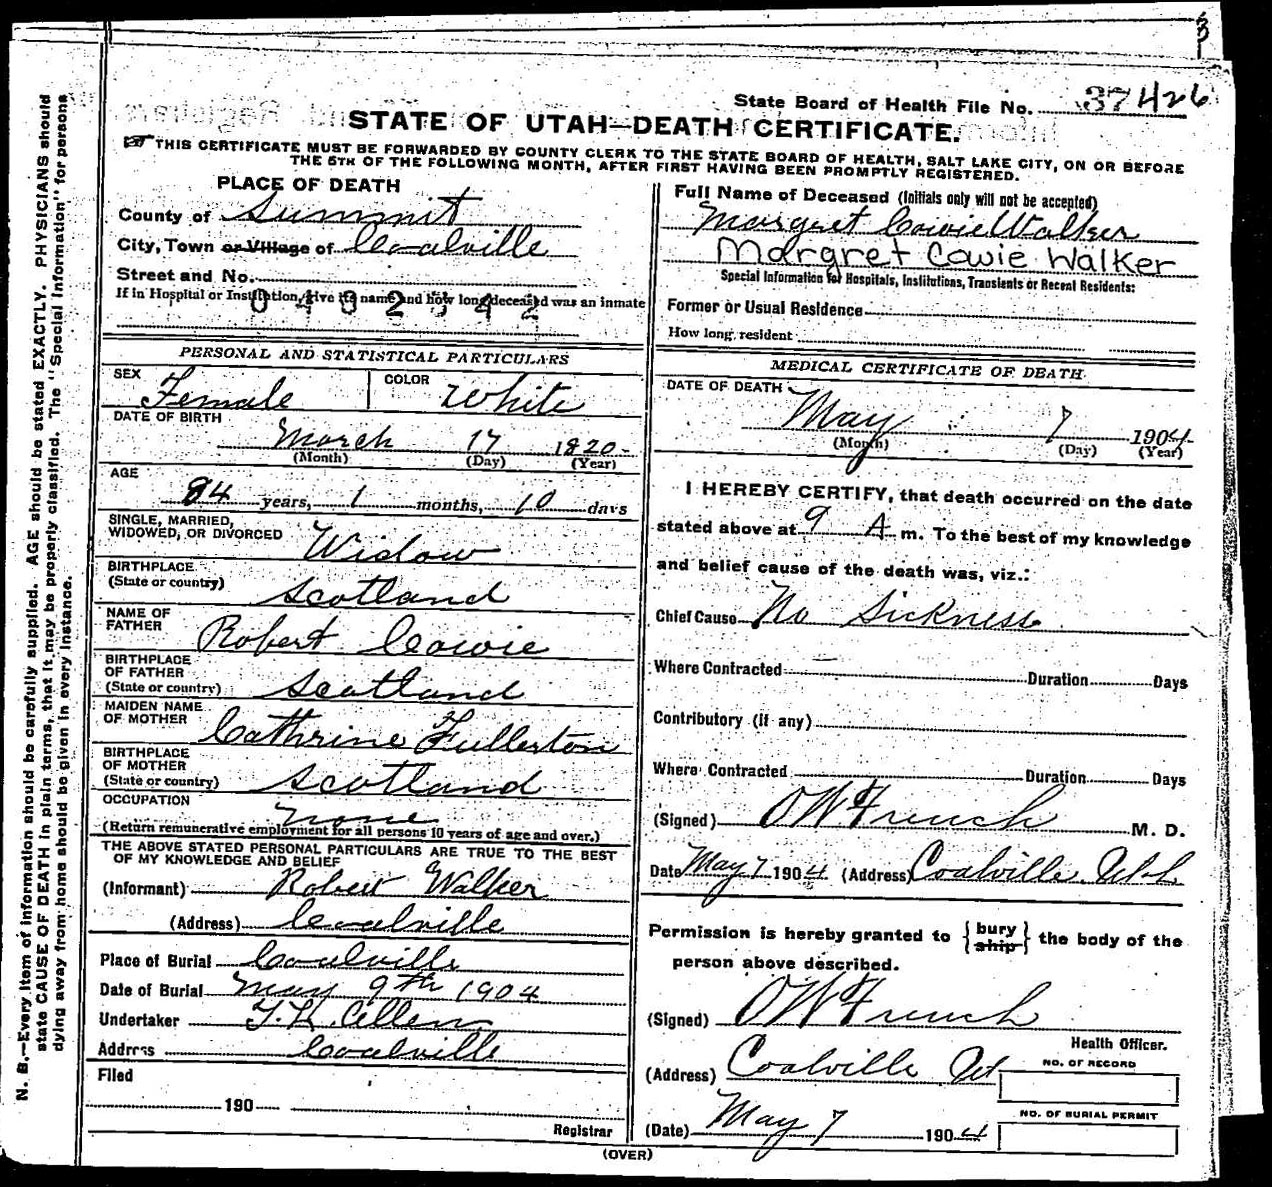 State Board of Health File No. 37426
STATE OF UTAH—DEATH CERTIFICATE.
THIS CERTIFICATE MUST BE FORWARDED BY COUNTY CLERK TO THE STATE BOARD OF HEALTH, SALT LAKE CITY, ON OR BEFORE
THE 5TH OF THE FOLLOWING MONTH, AFTER FIRST HAVING BEEN PROMPTLY REGISTERED.
PLACE OF DEATH
County of Summit
City, Town or Village of Coalville
Street and No.
If in Hospital or Institution, give its name and how long deceased was an inmate
PERSONAL AND STATISTICAL PARTICULARS
SEX Female COLOR White
DATE OF BIRTH
March 17 1820
(Month) (Day) (Year)
AGE
84 years, 1 months, 10 days
SINGLE, MARRIED,
WIDOWED, OR DIVORCED Widow
BIRTHPLACE
(State or country) Scotland
NAME OF
FATHER Robert Cowie
BIRTHPLACE
OF FATHER
(State or country) Scotland
MAIDEN NAME
OF MOTHER Cathrine Fullerton
BIRTHPLACE
OF MOTHER
(State or country) Scotland
OCCUPATION none
(Return remunerative employment for all persons 10 years of age and over.)
THE ABOVE STATED PERSONAL PARTICULARS ARE TRUE TO THE BEST
OF MY KNOWLEDGE AND BELIEF
(Informant) Robert Walker
(Address) Coalville
Place of Burial Coalville
Date of Burial May 9th 1904
Undertaker Allen
Address Coalville
Filed
190
Registrar
Full Name of Deceased (Initials only will not be accepted)
Margret Cowie Walker
Margret Cowie Walker
Special Information for Hospitals, Institutions, Transients or Recent Residents:
Former or Usual Residence
How long resident
MEDICAL CERTIFICATE OF DEATH
DATE OF DEATH
May 7 1904
(Month) (Day) (Year)
I HEREBY CERTIFY, that death occurred on the date
stated above at 9 A m. To the best of my knowledge
and belief cause of the death was, viz.:
Chief Cause No Sickness
Where Contracted Duration Days
Contributory (if any)
Where Contracted Duration Days
(Signed) O W French M. D.
Date May 7 1904 (Address) Coalville Utah
Permission is hereby granted to { bury ship } the body of the
person above described.
(Signed) O W French
Health Officer.
(Address) Coalville Ut
NO. OF RECORD
NO. OF BURIAL PERMIT
(Date) May 7 1904
(OVER)
N. B.—Every item of information should be carefully supplied. AGE should be stated EXACTLY. PHYSICIANS should
state CAUSE OF DEATH in plain terms, that it may be properly classified. The "Special Information" for persons
dying away from home should be given in every instance.